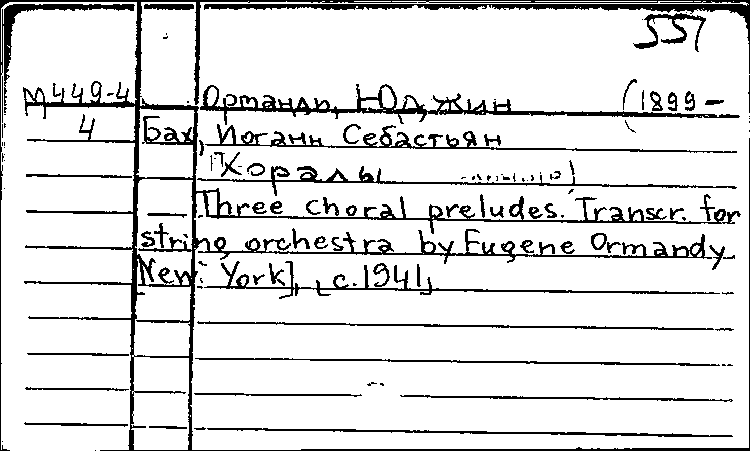 557
М449-4 Орманди, Юджин (1899 –
4 Бах, Иоганн Себастьян
[Хоралы
Three choral preludes. Transcr. for
string orchestra by Eugene Ormandy
New York], [c.1941]